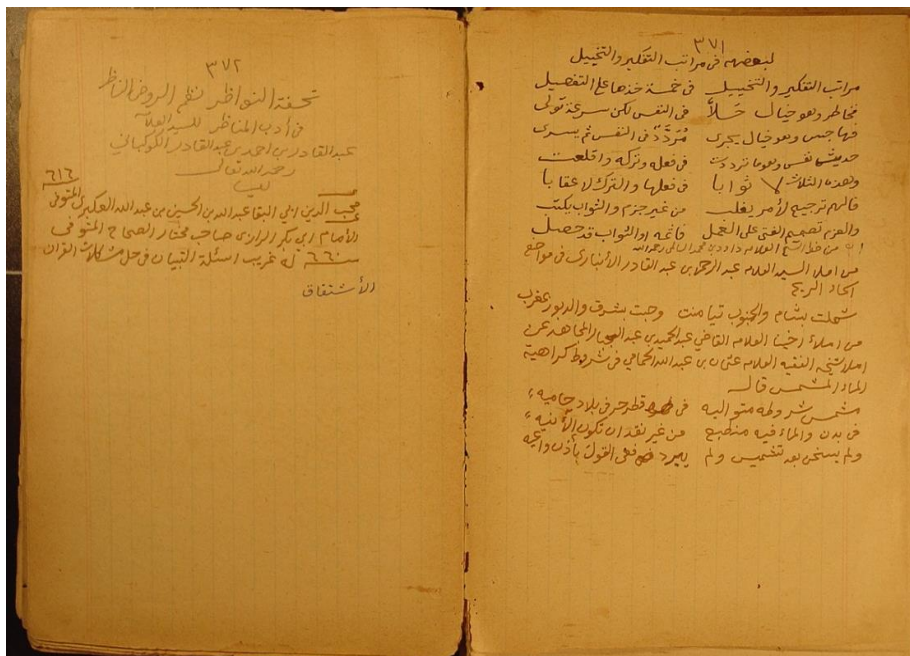 ٣٧١
لبعضهم فى مراتب التفكير والتخييل
مراتب التفكير والتخييل فى خمسة خذها على التفصيل
فخاطر وهو خيال حَلاَّ فى النفس لكن سرعة تولى
فهاجس وهو خيال يجرى مُرَدَّدٌ فى النفس ثم يسرى
حديث نفس وهو ما ترددت فى فعله وتركه واقلعت
وهذه الثلاث لا ثوابا فى فعلها والترك لا عقابا
فالهم ترجيح لأمر يغلب من غير جزم والثواب يكتب
والعزم تصميم الفتى على العمل فاثمه او الثواب قد حصل
من املا السيد العلامه عبد الرحمن بن عبد القادر الأنبارى فى مواضع
الريح
شملت بشام والجنوب تيامنت وحبت بشرق والدبور بمغرب
من املاء اخينا العلامه القاضي عبد الحميد بن عبد الجبار المجاهد عن
املا شيخه الفقيه العلامه عثمان بن عبد الله الحمامي فى شروط كراهية
الماء المشمس قال
مشمس شروطه متواليه فى قطر حر فى بلاد حاميه
فى بدن والماء فيه منطبع من غير نقد ان تكون الأنيه
ولم يسخن بعد تشميس ولم يبرد ففى القول
٣٧٢
تحفة النواظر نظم الروض الناظر
فى أدب المناظر للسيد العلامة
عبد القادر بن احمد بن عبد القادر الكوكبانى
رحمه الله تعالى
محب الدين ابى البقا عبد الله بن الحسين بن عبد الله العكبرى المتوفى ٦١٦
والأمام ابى بكر الرازى صاحب مختار الصحاح المتوفى
سنة ٦٦٠ له غريب اسئلة التبيان فى حل مشكلات القران
الأشتقاق